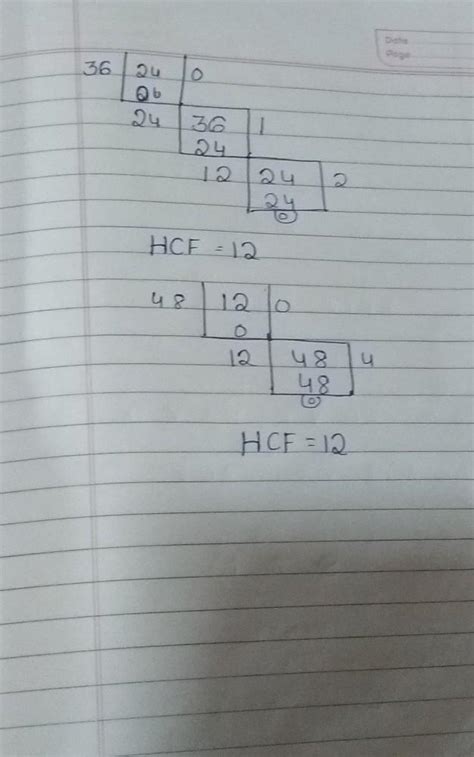 Date
Page
36 24 0
24 36 1
24
12 24 2
24
0
HCF = 12
48 12 0
0
12 48 4
48
0
HCF = 12